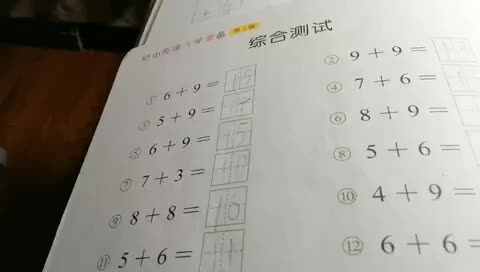 综合测试
① 6 + 9 = 15
② 9 + 9 =
③ 5 + 9 = 14
④ 7 + 6 =
⑤ 6 + 9 = 15
⑥ 8 + 9 =
⑦ 7 + 3 =
⑧ 5 + 6 =
⑨ 8 + 8 =
⑩ 4 + 9 =
⑪ 5 + 6 = 11
⑫ 6 + 6 =